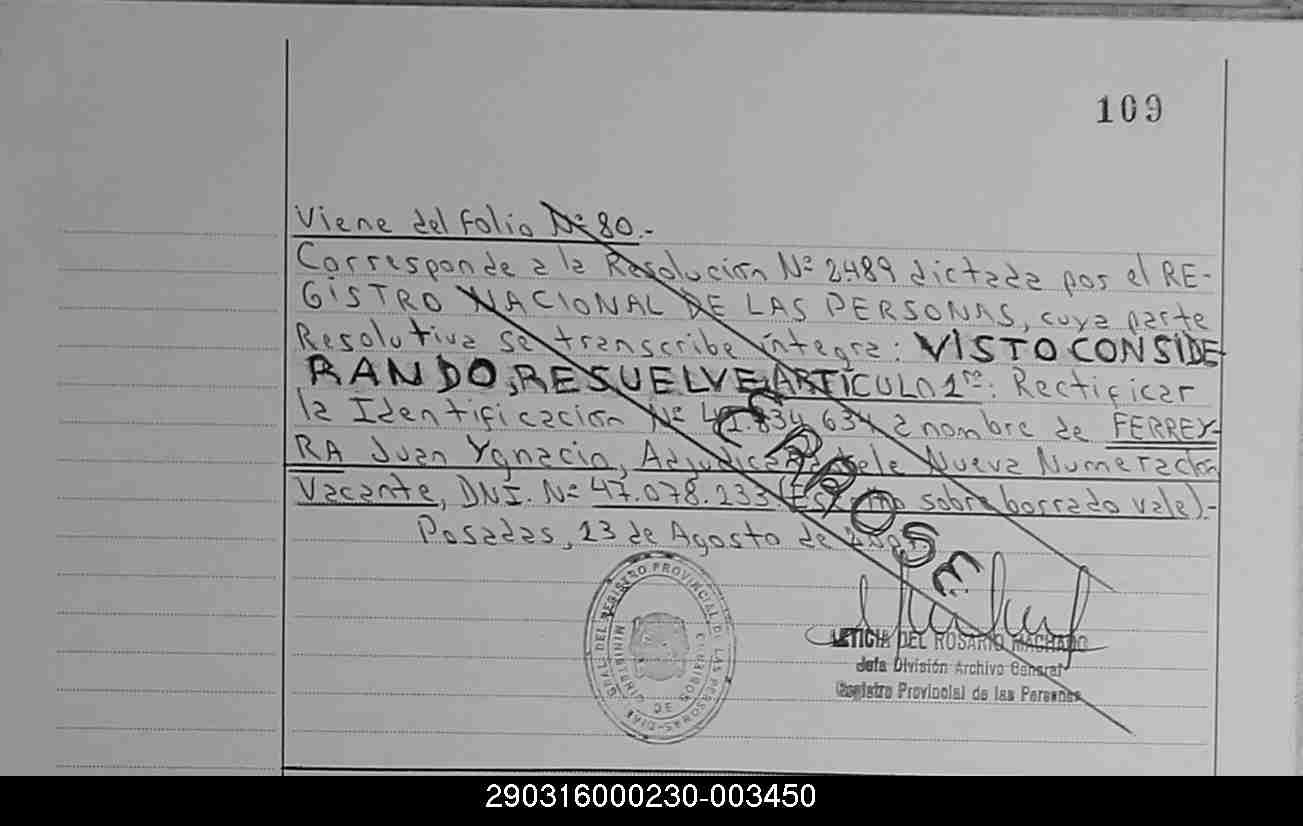 109
Viene del Folio Nº 80.-
Corresponde a la Resolución Nº 2489 dictada por el RE-
GISTRO NACIONAL DE LAS PERSONAS, cuya parte
Resolutiva se transcribe íntegra: VISTO CONSIDE-
RANDO, RESUELVE, ARTÍCULO 1ro: Rectificar
la Identificación Nº 634 a nombre de FERREY-
RA Juan Ygnacio, Adjudicandosele Nueva Numeración
Vacante, DNI. Nº 47.078.233. sobre borrado vale).-
Posadas, 13 de Agosto de
ERROSE
GRAL. DEL REGISTRO PROVINCIAL DE LAS PERSONAS
MINISTERIO DE
LETICIA DEL ROSARIO MACHADO
Jefa División Archivo General
Registro Provincial de las Personas
290316000230-003450